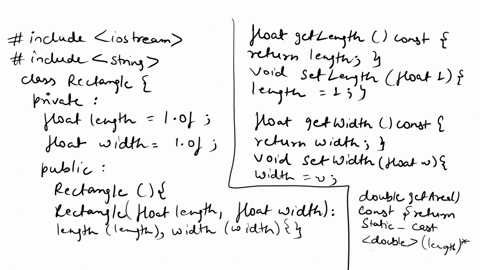 # include <iostream>
# include <string>
class Rectangle {
private :
float length = 1.0f ;
float width = 1.0f ;
public :
Rectangle () {
Rectangle( float length, float width) :
length (length), width (width) {}
float getLength () const {
return length; }
void setLength (float l) {
length = l ; }
float getWidth () const {
return width; }
void setWidth (float w) {
width = w ;
double getArea()
const { return
Static_cast
<double> (length)*